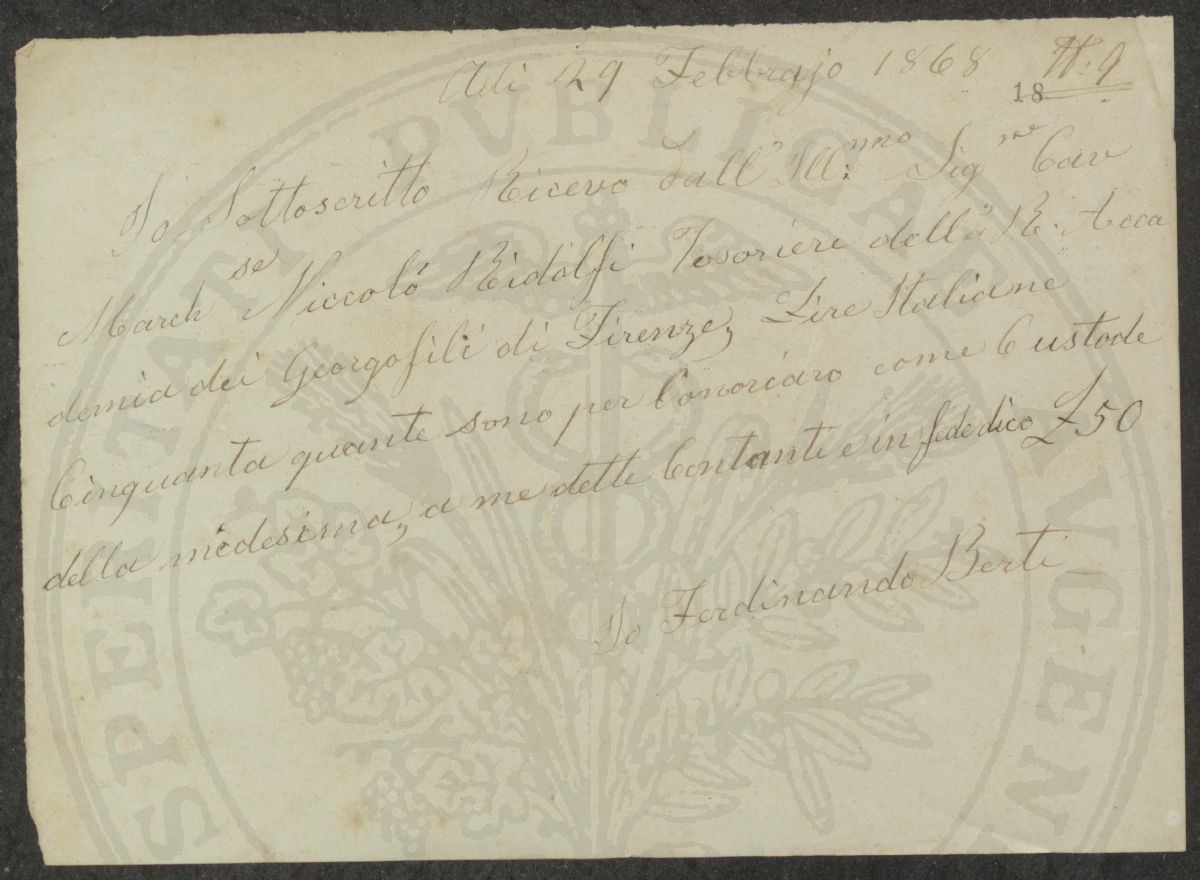 Adi 29 Febbrajo 1868 N. 9
18
Io Sottoscritto Ricevo dall' Ill:mo Sigre Cav
Marchse Niccolò Ridolfi Tesoriere della R. Acca
demia dei Georgofili di Firenze, Lire Italiane
Cinquanta quante sono per l'onorario come Custode
della medesima, a me dette Contanti e in fede dico £50
Io Ferdinando Berti
PVBLICAE